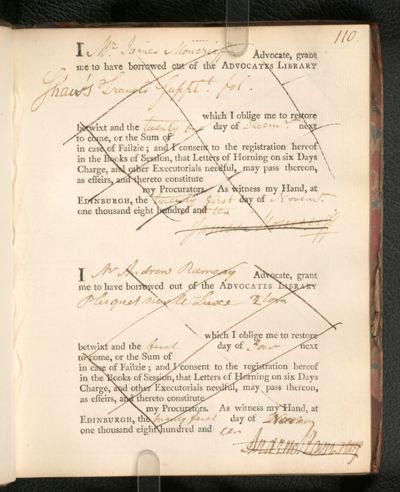 110.
I Mr James Moncrieff Advocate, grant
me to have borrowed out of the ADVOCATES LIBRARY
Shaw's Travels Supplt. fol.
which I oblige me to restore
betwixt and the twenty first day of Decemr. next
to come, or the Sum of
in case of Failzie; and I consent to the registration hereof
in the Books of Session, that Letters of Horning on six Days
Charge, and other Executorials needful, may pass thereon,
as effeirs, and thereto constitute
my Procurators. As witness my Hand, at
EDINBURGH, the twenty first day of Novemr.
one thousand eight hundred and ten
James Moncrieff
I Mr Andrew Ramsay Advocate, grant
me to have borrowed out of the ADVOCATES LIBRARY
which I oblige me to restore
betwixt and the day of next
to come, or the Sum of
in case of Failzie; and I consent to the registration hereof
in the Books of Session, that Letters of Horning on six Days
Charge, and other Executorials needful, may pass thereon,
as effeirs, and thereto constitute
my Procurators. As witness my Hand, at
EDINBURGH, the twenty first day of
one thousand eight hundred and ten
Andrew Ramsay